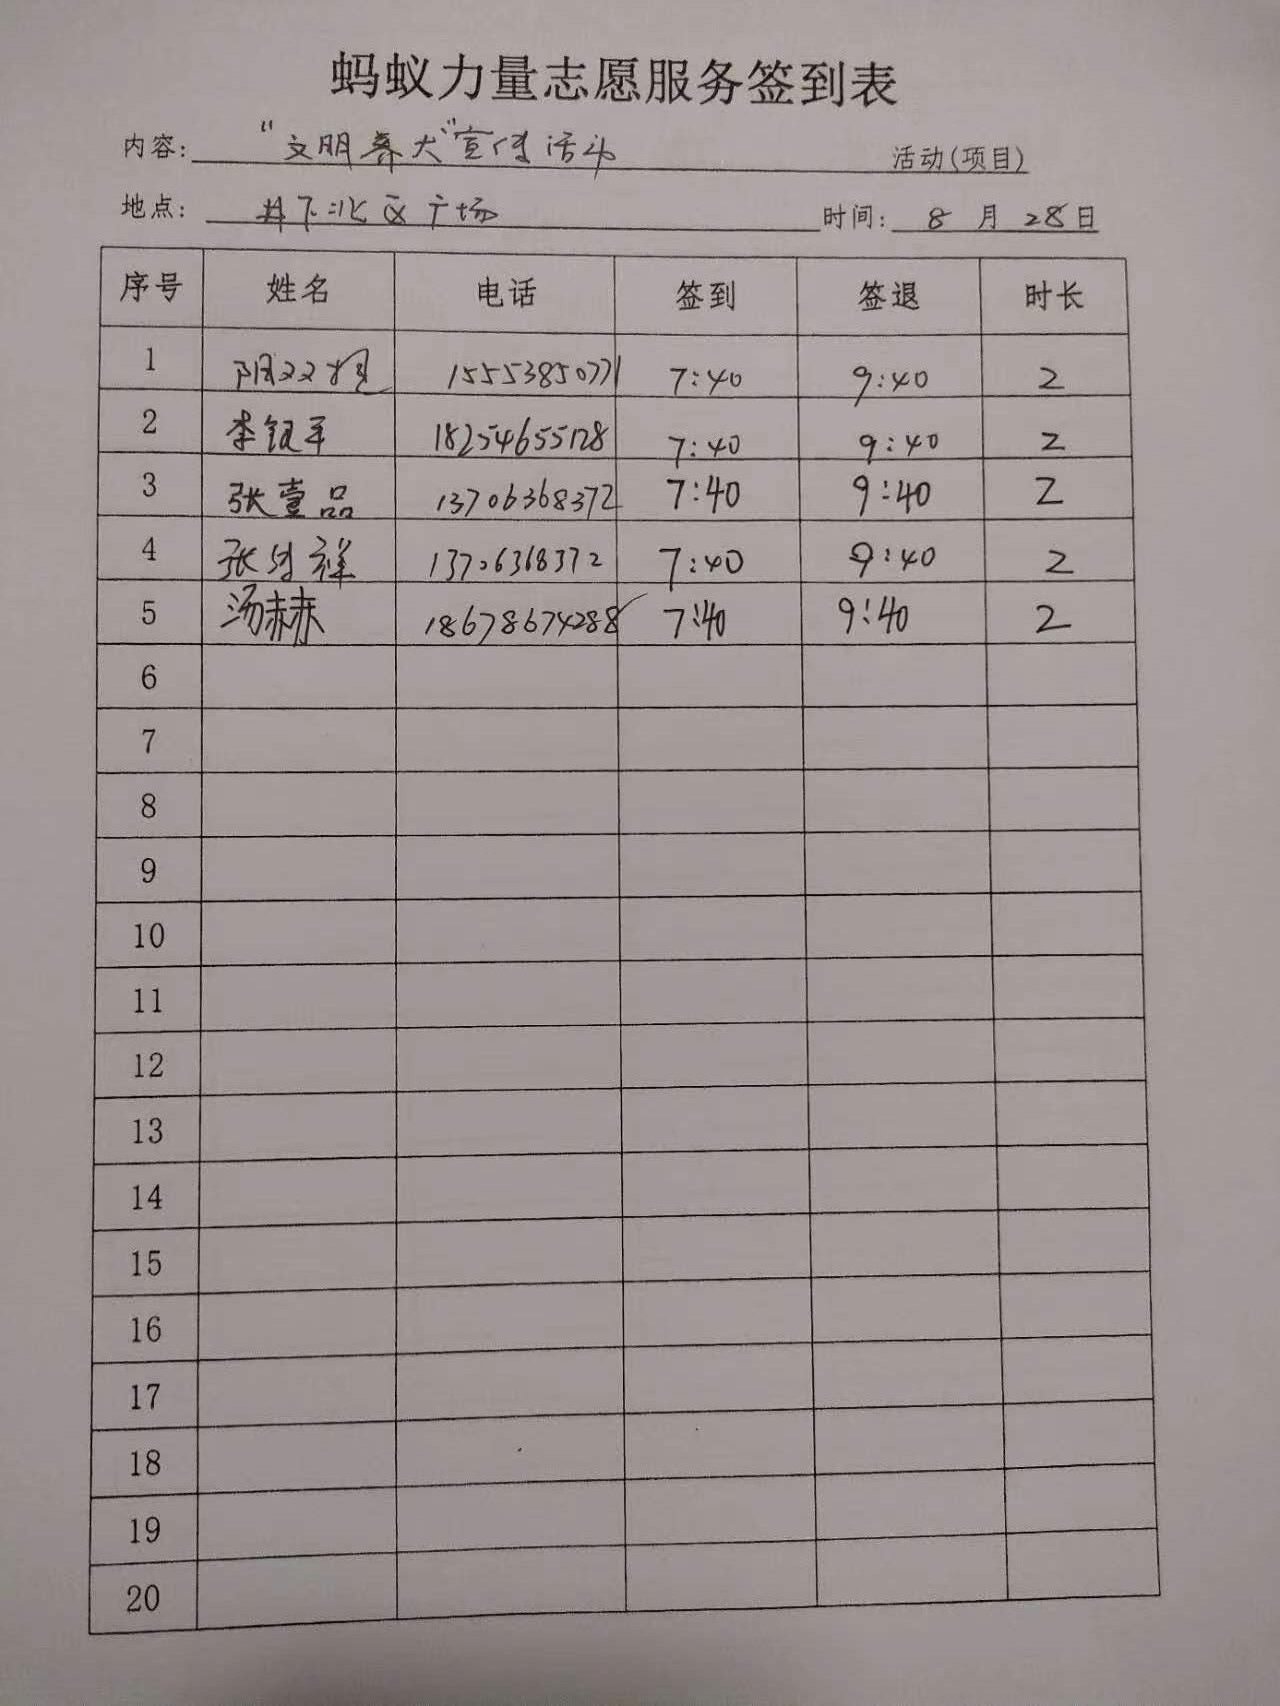 蚂蚁力量志愿服务签到表
内容: "文明养犬"宣传活动 活动(项目)
地点: 井下北区广场 时间: 8 月 28 日
序号 姓名 电话 签到 签退 时长
1 15553850771 7:40 9:40 2
2 李钰平 18254655128 7:40 9:40 2
3 张壹品 13706368372 7:40 9:40 2
4 13706368372 7:40 9:40 2
5 汤赫赫 18678674288 7:40 9:40 2
6
7
8
9
10
11
12
13
14
15
16
17
18
19
20